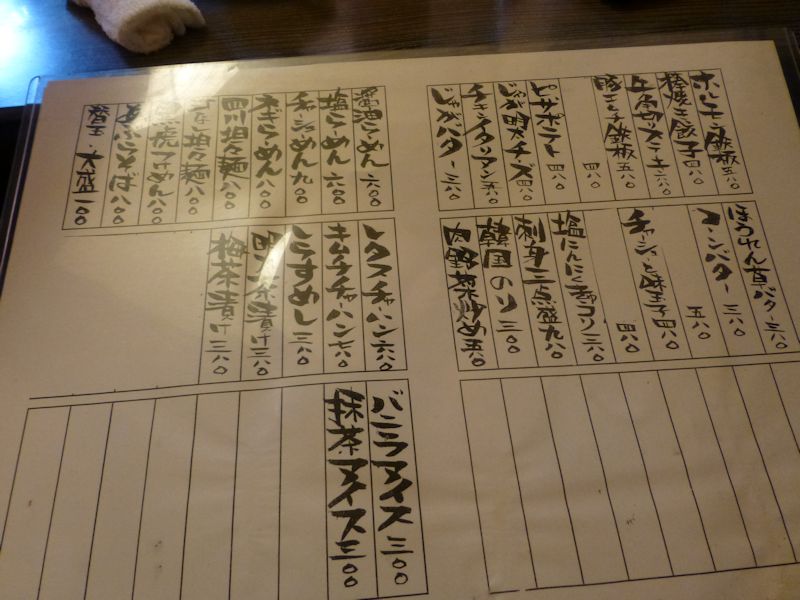 ホルモン鉄板 五八〇
棒餃子 四八〇
六八〇
豚キムチ鉄板 五八〇
四八〇
ピザポテト 四八〇
じゃが明太チーズ 四八〇
チャンプルー
じゃがバター 三八〇
ほうれん草バター 三八〇
コーンバター 三八〇
五八〇
チャーシューと味玉子 四八〇
四八〇
塩にんにく 三八〇
刺身三点盛 九八〇
韓国のり 三〇〇
肉野菜炒め 五八〇
醤油らーめん 六〇〇
塩らーめん 六〇〇
チャーシューめん 九〇〇
ネギらーめん 八〇〇
四川坦々麺 八〇〇
坦々麺 八〇〇
つけめん 八〇〇
あぶらそば 八〇〇
替玉・大盛 一〇〇
レタスチャーハン 六八〇
キムチチャーハン 七八〇
しらすめし 三八〇
明太茶漬け 三八〇
梅茶漬け 三八〇
バニラアイス 三〇〇
抹茶アイス 三〇〇